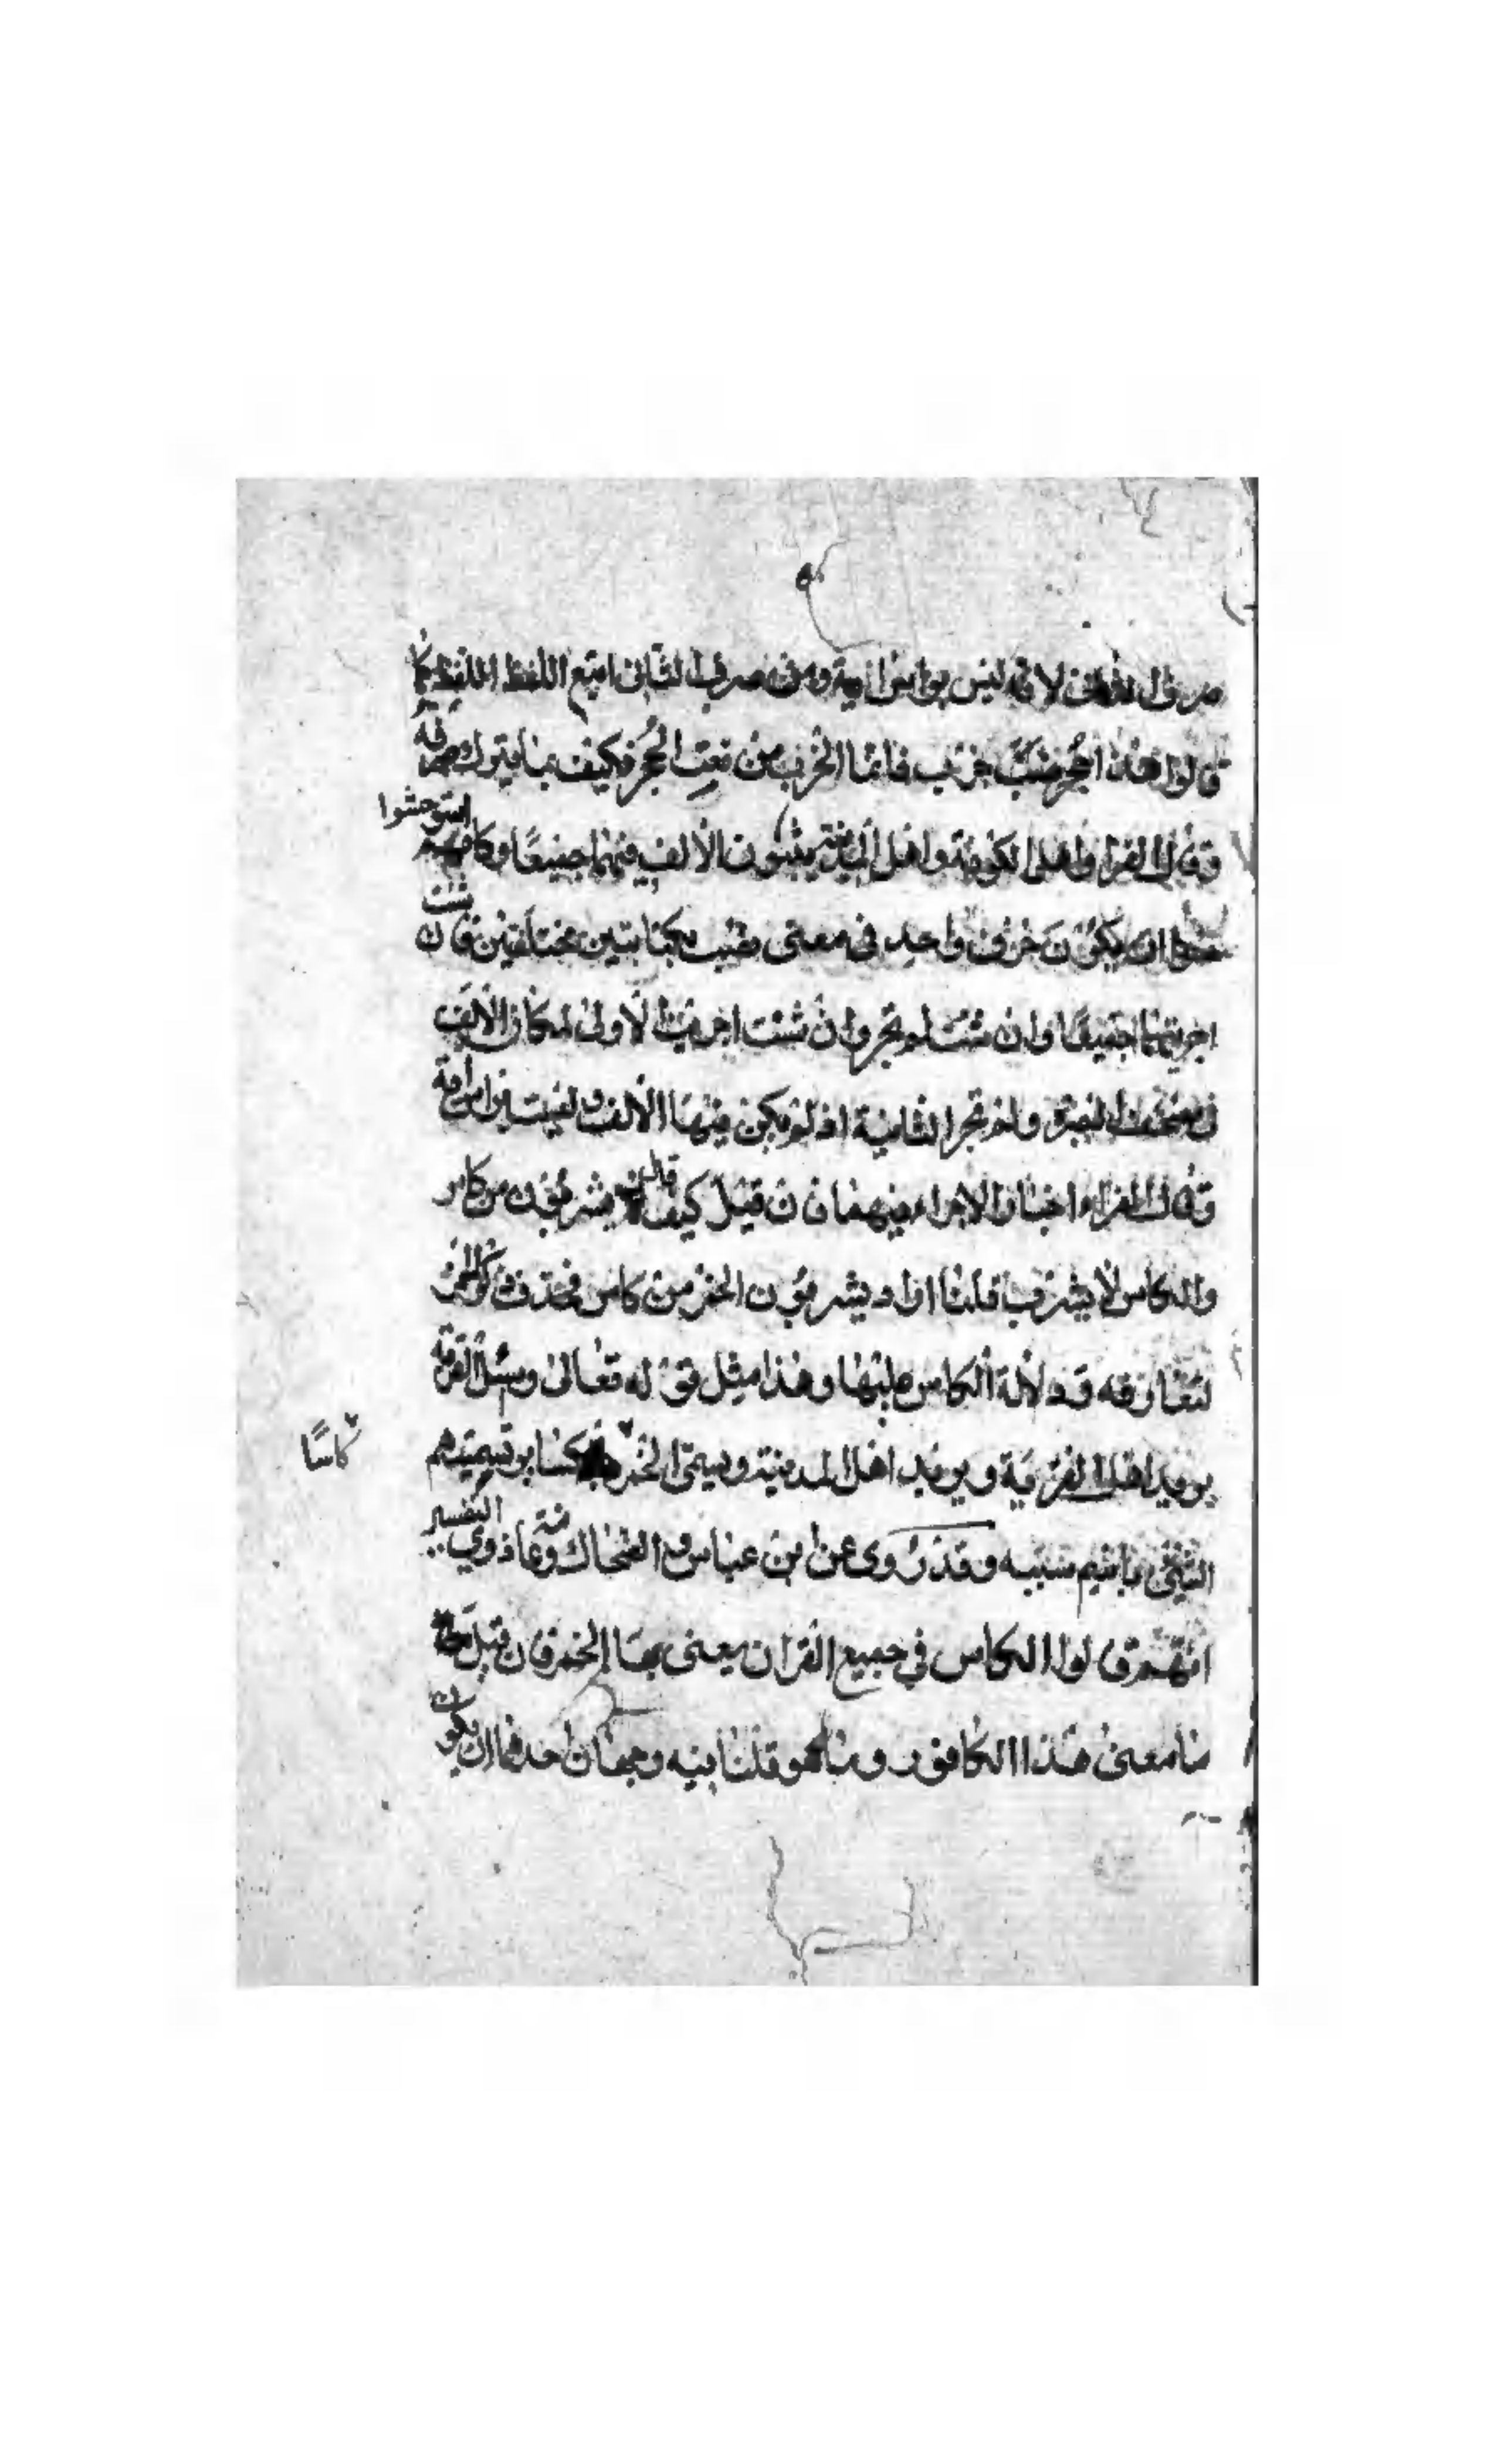 صرف الأول لأنه ليس برأس آية ومن صرف الثاني اتبع اللفظ اللفظ كما
قالوا هذا جحر ضب خرب فانما الخرب من نعت الجحر فكيف بما يترك صرفه
وقال الفراء واهل الكوفة واهل المدينة يثبتون الألف فيهما جميعًا وكانهم استوحشوا
ان يكون حرف واحد فى معنى نصب بكتابتين مختلفتين فان شئت
اجريتهما جميعًا وان شئت لم تجر وان شئت اجريت الأولى لمكان الألف
فى مصحف البصرة ولم تجر الثانية اذ لم يكن فيها الألف وليست براس آية
وقال الفراء اختار الاجراء فيهما فان قيل كيف قال يشربون من كاس
والكاس لا يشرب قلنا اراد يشربون الخمر من كاس فحذف ذكر الخمر
لتعارفه ودلالة الكاس عليها وهذا مثل قوله تعالى وسئل القرية
يريد اهل القرية ويريد اهل المدينة ويسمى الخمر كتسميتهم
كاسًا
الشئ باسم سببه وقد روى عن ابن عباس والضحاك وعامة ذوي التفسير
انهم قالوا الكاس في جميع القران يعنى بها الخمر فان قيل
ما معنى هذا الكافور وما هو قلنا فيه وجهان احدهما ان يكون